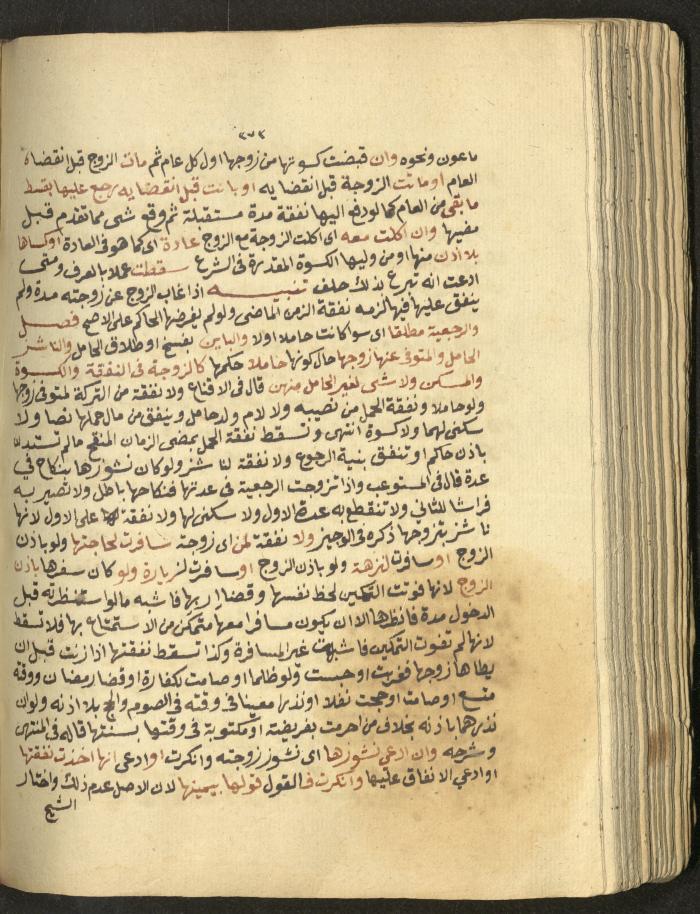 ٢٧٢
ماعون ونحوه وان قبضت كسوتها من زوجها اول كل عام ثم مات الزوج قبل انقضاء
العام او ماتت الزوجة قبل انقضايه او بانت قبل انقضايه رجع عليها بقسط
ما بقي من العام كما لو دفع اليها نفقة مدة مستقبلة ثم وقع شي مما تقدم قبل
مضيها وان اكلت معه اي اكلت الزوجة مع الزوج عادة اي كما هو في العادة او كساها
بلا اذن منها او من وليها الكسوة المقدرة في الشرع سقطت عملا بالعرف ومتى
ادعت انه تبرع بذلك حلف تنبيه اذا غاب الزوج عن زوجته مدة ولم
ينفق عليها فيها لزمه نفقة الزمن الماضي ولو لم يفرضها الحاكم على الاصح فصل
والرجعية مطلقا اي سوا كانت حاملا اولا والباين بفسخ او طلاق الحامل والناشز
الحامل والمتوفى عنها زوجها حال كونها حاملا حكمها كالزوجة في النفقة والكسوة
والمسكن ولا شي لغير الحامل منهن قال في الاقناع ولا نفقة من التركة لمتوفى زوجها
ولو حاملا ونفقة الحمل من نصيبه ولا لام ولد حامل وينفق من مال حملها نصا ولا
سكنى لهما ولا كسوة انتهى وتسقط نفقة الحمل بمضي الزمان المنقح ما لم تستدن
باذن حاكم او تنفق بنية الرجوع ولا نفقة لناشز ولو كان نشوزها بنكاح في
عدة قال في المستوعب واذا تزوجت الرجعية في عدتها فنكاحها باطل ولا تصير به
فراشا للثاني ولا تنقطع به عدة الاول ولا سكنى لها ولا نفقة لها على الاول لانها
ناشز بتزوجها ذكره في الوجيز ولا نفقة لمن اي زوجة سافرت لحاجتها ولو باذن
الزوج او سافرت لنزهة ولو باذن الزوج او سافرت لزيارة ولو كان سفرها باذن
الزوج لانها فوتت التمكين لحظ نفسها وقضا اربها فاشبه ما لو استنظرته قبل
الدخول مدة فانظرها الا ان يكون مسافرا معها متمكن من الاستمتاع بها فلا تسقط
لانها لم تفوت التمكين فاشبهت غير المسافرة وكذا تسقط نفقتها اذا زنت قبل ان
يطاها زوجها فغربت او حبست ولو ظلما او صامت لكفارة او قضا رمضان ووقته
متسع او صامت او حجت نفلا او نذرا معينا في وقته في الصوم والحج بلا اذنه ولو ان
نذرهما باذنه بخلاف من احرمت بفريضة او مكتوبة في وقتها بسنتها قاله في المنتهى
وشرحه وان ادعى نشوزها اي نشوز زوجته وانكرت او ادعى انها اخذت نفقتها
او ادعى الانفاق عليها وانكرت فالقول قولها بيمينها لان الاصل عدم ذلك واختار
الشيخ